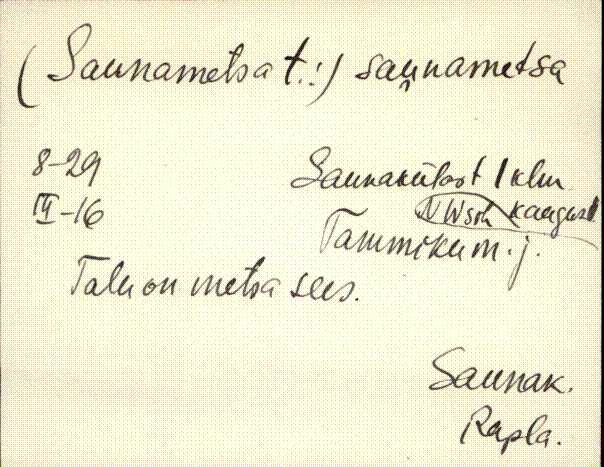 (Saunametsa t.:) saunametsa
8-29 Saunakülast 1 klm
III-16 NW sch kaugusel
Tammiku m. j.
Talu on metsa sees.
Saunak.
Rapla.